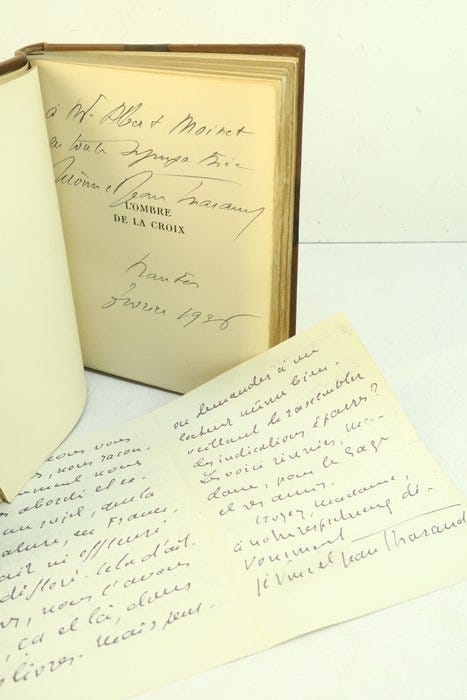 à Mr Albert Moinet
en toute sympathie
Jérôme Jean Tharaud
L'OMBRE
DE LA CROIX
Nantes
février 1936
nous vous
, nous racon-
comment nous
abordé et ce
un sujet, que la
en France,
ni offensé
. Cela d'ait-
, nous l'avons
, çà et là, dans
livres. Mais peut-
on demander à un
lecteur même bien-
veillant de rassembler
des indications éparses?
Les voici réunies, ma-
dame, pour le Sage
et ses amis.
Croyez, madame,
à notre respectueux dé-
vouement
Jérôme et Jean Tharaud